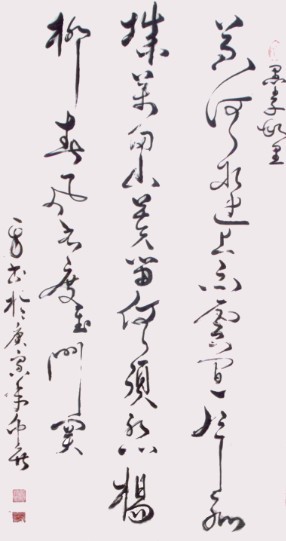 黄河远上白云间一片孤
城万仞山羌笛何须怨杨
柳春风不度玉门关
书於庚寅年